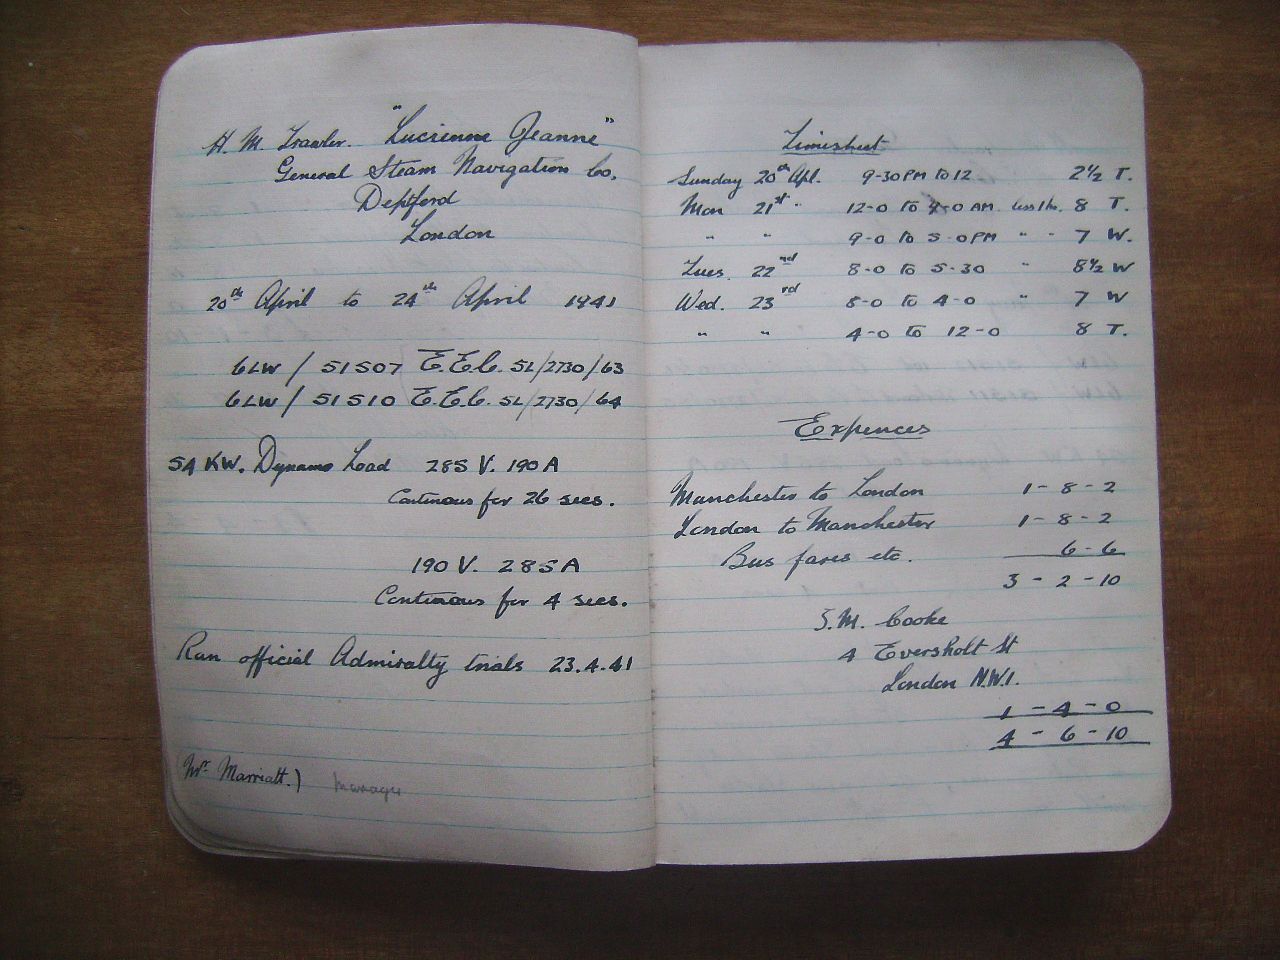 H. M. Trawler. "Lucienne Jeanne"
General Steam Navigation Co.
Deptford
London
20th April to 24th April 1941
6LW / 51507 E.E.C. SL/2730/63
6LW / 51510 E.E.C. SL/2730/64
54 KW. Dynamo Load 285 V. 190 A
Continuous for 26 secs.
190 V. 285 A
Continuous for 4 secs.
Ran official Admiralty trials 23.4.41
Mr Marriatt.) Manager
Timesheet
Sunday 20th Apl. 9-30 PM to 12 2½ T.
Mon 21st " 12-0 to 4-0 AM. less 1 hr. 8 T.
" " 9-0 to 5-0 PM " " 7 W.
Tues. 22nd 8-0 to 5-30 " 8½ W
Wed. 23rd 8-0 to 4-0 " 7 W
" " 4-0 to 12-0 8 T.
Expences
Manchester to London 1-8-2
London to Manchester 1-8-2
Bus fares etc. 6-6
3-2-10
S.M. Cooke
4 Eversholt St
London N.W.1.
1-4-0
4-6-10